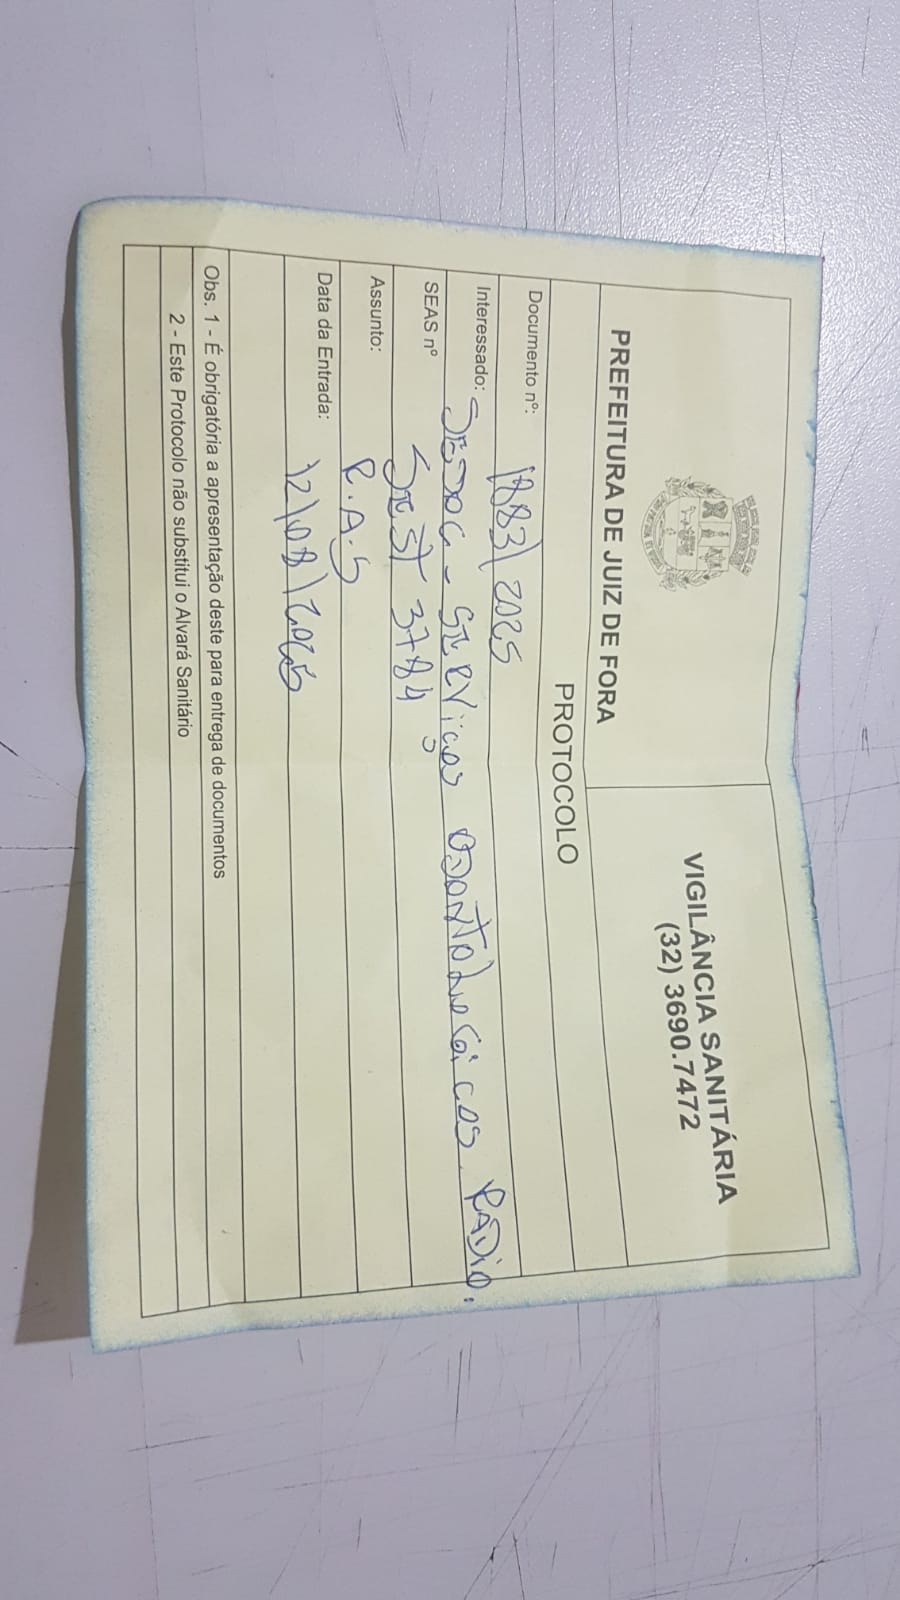 PREFEITURA DE JUIZ DE FORA
VIGILÂNCIA SANITÁRIA
(32) 3690.7472
PROTOCOLO
Documento nº: 1883/2025
Interessado: SEDOC - SERViços ODONTOLóGiCOS RADiO.
SEAS nº SEST 3784
Assunto: R.A.S
Data da Entrada: 12/08/2025
Obs. 1 - É obrigatória a apresentação deste para entrega de documentos
2 - Este Protocolo não substitui o Alvará Sanitário